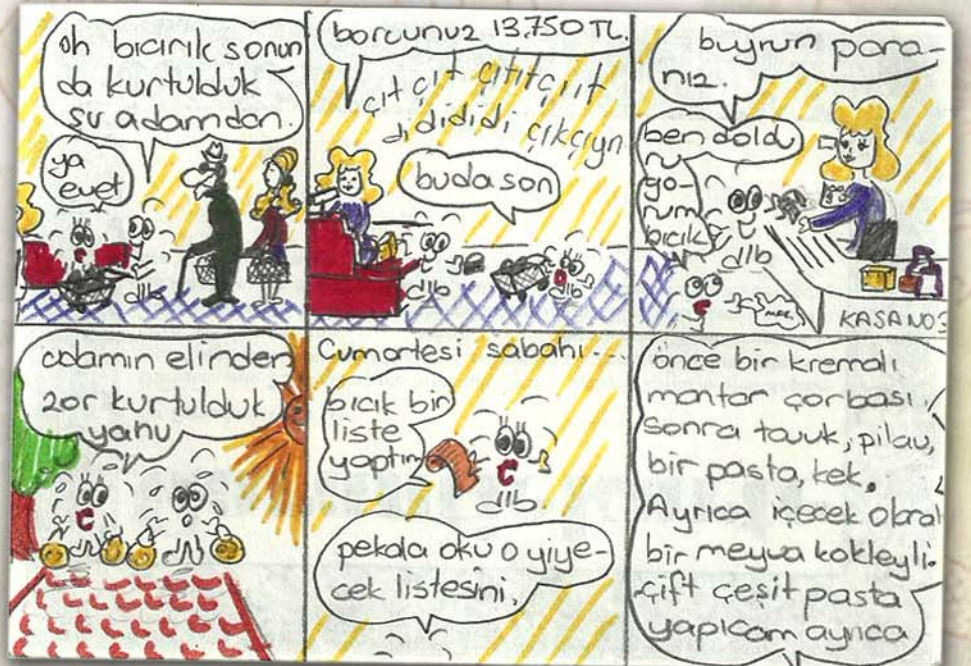 oh bıcırık sonun
da kurtulduk
şu adamdan.
ya
evet
borcunuz 13.750 TL.
çıt çıt çıtıtçıt
dıdıdıdıdı çıkçıyn
buda son
buyrun para-
nız.
ben doldu
ru
yo-
rum
bıcık
KASA NO3
adamın elinden
zor kurtulduk
yahu
Cumartesi sabahı...
bıcık bir
liste
yaptım
pekala oku o yiye-
cek listesini.
önce bir kremalı
mantar çorbası.
Sonra tavuk, pilav,
bir pasta, kek.
Ayrıca içecek olarak
bir meyva kokleyli.
çift çeşit pasta
yapıcam ayrıca